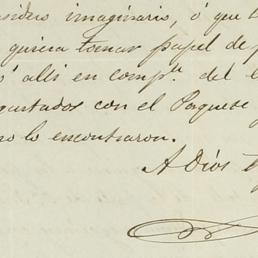 sidero imaginario, ó que
quiera tomar papel de
allí en comp.ª del
gustados con el Paquete
lo encontraron.
A Dios